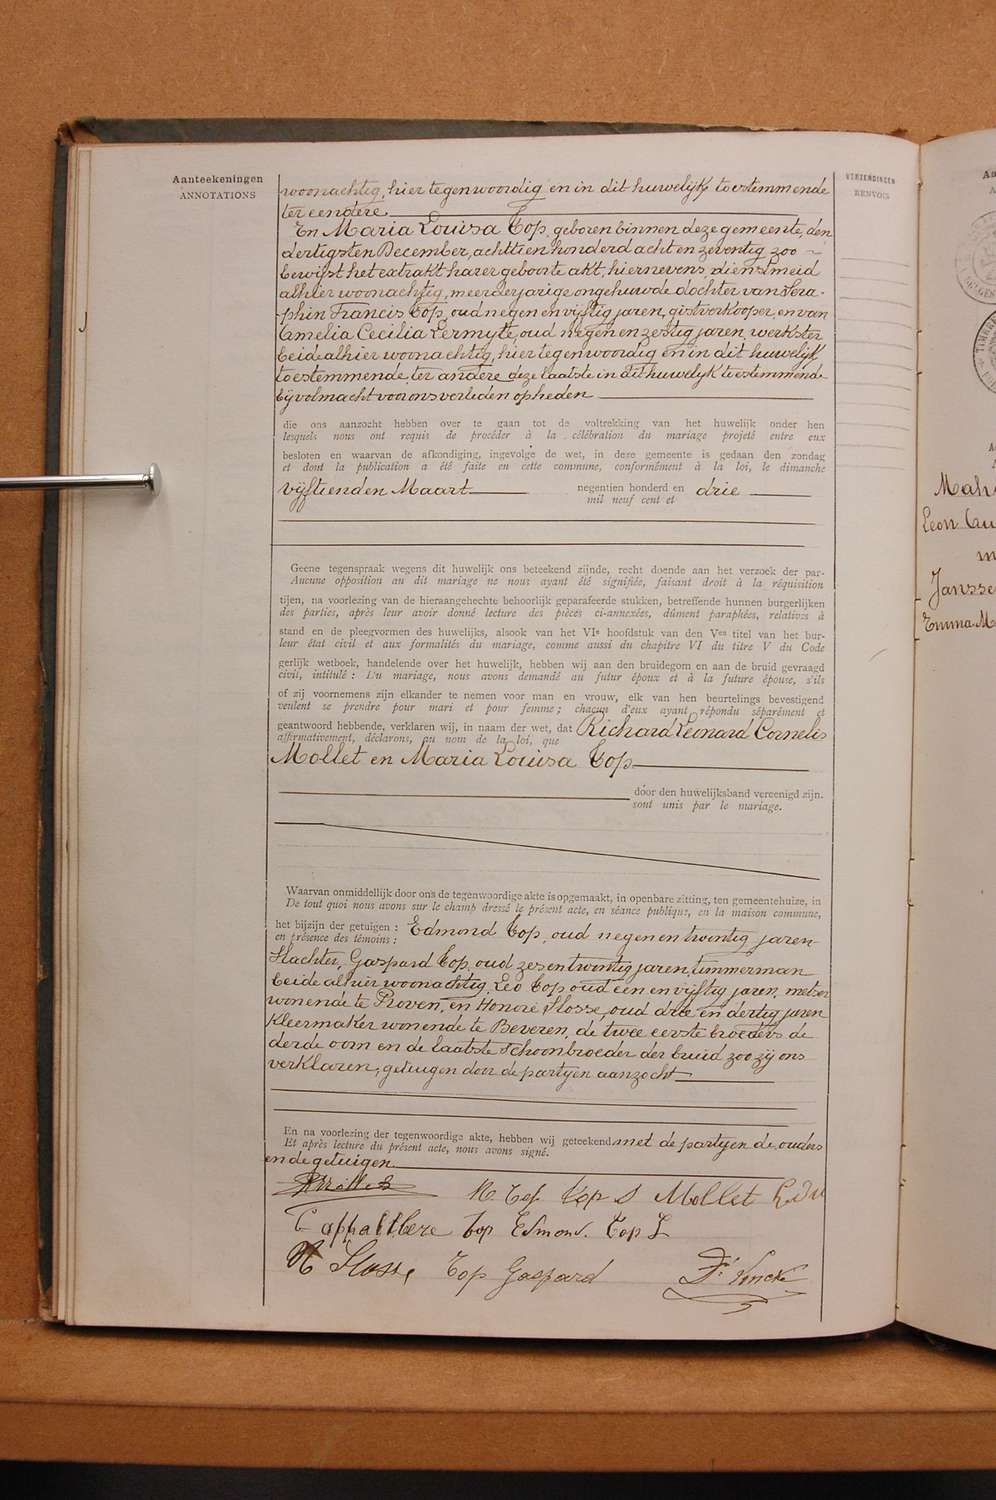 Aanteekeningen
ANNOTATIONS
VERZENDINGEN
RENVOIS
woonachtig, hier tegenwoordig en in dit huwelijk toestemmende
ter eendere
En Maria Louisa Top, geboren binnen deze gemeente, den
dertigsten December, achttien honderd acht en zeventig zoo
bewijst het extrakt harer geboorte akt, hiernevens, dienstmeid
alhier woonachtig, meerderjarige ongehuwde dochter van Sera-
phin Francis Top, oud negen en vijftig jaren, gistverkooper, en van
Amelia Cecilia Lermyte, oud negen en zestig jaren, werkster
beide alhier woonachtig, hier tegenwoordig en in dit huwelijk
toestemmende, ter andere deze laatste in dit huwelyk toestemmende
bij volmacht voor ons verleden op heden
die ons aanzocht hebben over te gaan tot de voltrekking van het huwelijk onder hen
lesquels nous ont requis de procéder à la célébration du mariage projeté entre eux
besloten en waarvan de afkondiging, ingevolge de wet, in deze gemeente is gedaan den zondag
et dont la publication a été faite en cette commune, conformément à la loi, le dimanche
vijftienden Maart negentien honderd en drie
mil neuf cent et
Geene tegenspraak wegens dit huwelijk ons beteekend zijnde, recht doende aan het verzoek der par-
Aucune opposition au dit mariage ne nous ayant été signifiée, faisant droit à la réquisition
tijen, na voorlezing van de hieraangehechte behoorlijk geparafeerde stukken, betreffende hunnen burgerlijken
des parties, après leur avoir donné lecture des pièces ci-annexées, dûment paraphées, relatives à
stand en de pleegvormen des huwelijks, alsook van het VIe hoofdstuk van den Ven titel van het bur-
leur état civil et aux formalités du mariage, comme aussi du chapitre VI du titre V du Code
gerlijk wetboek, handelende over het huwelijk, hebben wij aan den bruidegom en aan de bruid gevraagd
civil, intitulé : Du mariage, nous avons demandé au futur époux et à la future épouse, s'ils
of zij voornemens zijn elkander te nemen voor man en vrouw, elk van hen beurtelings bevestigend
veulent se prendre pour mari et pour femme ; chacun d'eux ayant répondu séparément et
geantwoord hebbende, verklaren wij, in naam der wet, dat Richard Leonard Cornelis
affirmativement, déclarons, au nom de la loi, que
Mollet en Maria Louisa Top
door den huwelijksband vereenigd zijn.
sont unis par le mariage.
Waarvan onmiddellijk door ons de tegenwoordige akte is opgemaakt, in openbare zitting, ten gemeentehuize, in
De tout quoi nous avons sur le champ dressé le présent acte, en séance publique, en la maison commune,
het bijzijn der getuigen : Edmond Top, oud negen en twintig jaren
en présence des témoins :
Slachter, Gaspard Top, oud zes en twintig jaren, timmerman
beide alhier woonachtig, Leo Top oud een en vijftig jaren, metser
wonende te Proven, en Honoré Slosse, oud drie en dertig jaren
kleermaker wonende te Beveren, de twee eerste broeders de
derde oom en de laatste schoonbroeder der bruid zoo zij ons
verklaren, getuigen door de partyen aanzocht
En na voorlezing der tegenwoordige akte, hebben wij geteekend met de partyen de ouders
Et après lecture du présent acte, nous avons signé.
en de getuigen
R Mollet M. Top Top S Mollet
Top Edmond. Top L
H Slosse Top Gaspard
Mah
Leon
Jansse
Emma M